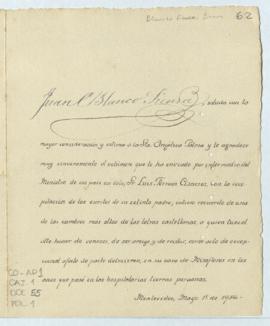 Blanco Fombona 62
Juan C. Blanco Sienra saluda con la
mayor consideración y estima a la Sta. Angélica Palma y le agradece
muy sinceramente el volumen que le ha enviado por intermedio del
Ministro de su país en ésta, Sr. Luis Fernán Cisneros, con la reco-
pilación de los escritos de su extinto padre, valioso recuerdo de uno
de los nombres más altos de las letras castellanas, a quien tuve el
alto honor de conocer, de ser amigo y de recibir,
en su casa de Miraflores en los
años que pasé en las hospitalarias tierras peruanas.
Montevideo, Mayo 15 de
CO-AP1
CAJ. 1
DOC 55
FOL. 1